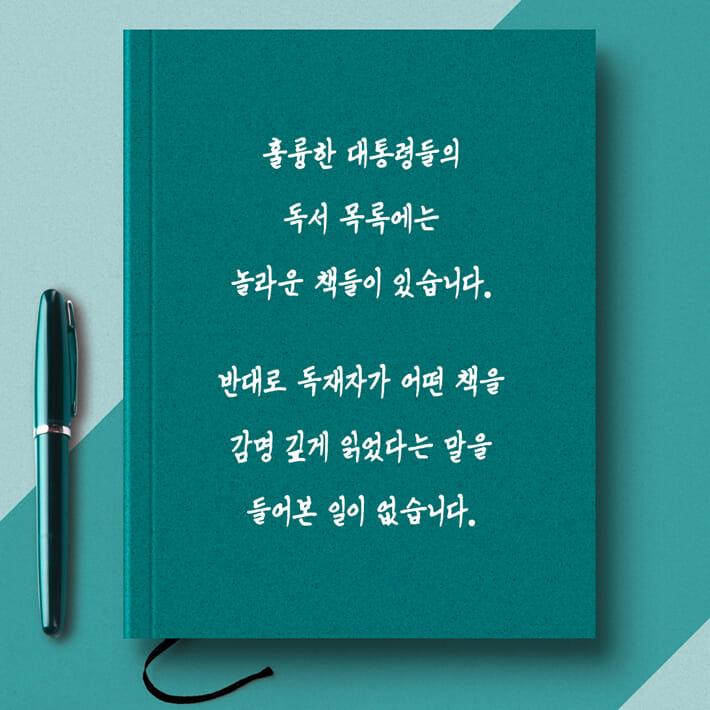 훌륭한 대통령들의
독서 목록에는
놀라운 책들이 있습니다.
반대로 독재자가 어떤 책을
감명 깊게 읽었다는 말을
들어본 일이 없습니다.